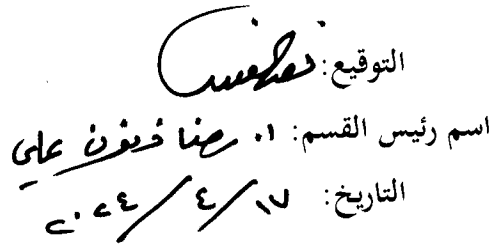 التوقيع:
اسم رئيس القسم: ا. رضا فرعون علي
التاريخ: ١٧/٤/٢٠٢٤